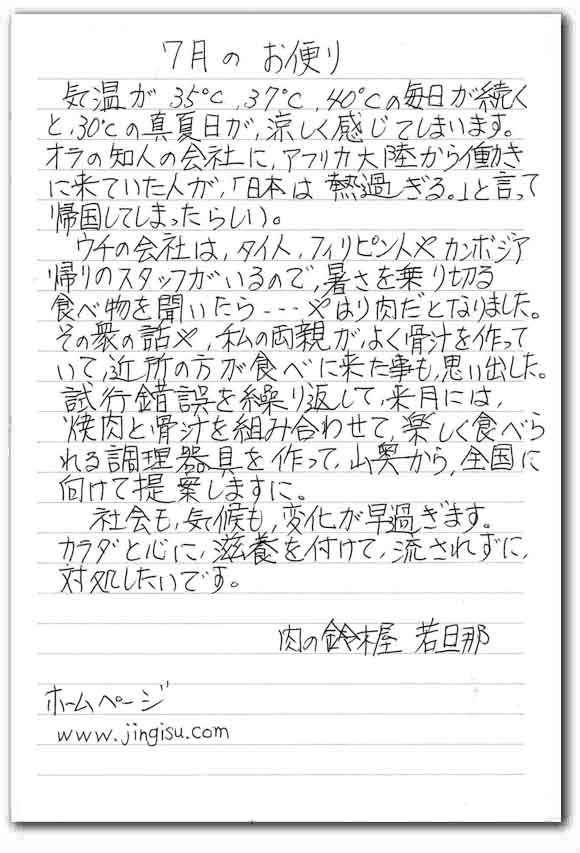 7月のお便り
気温が35℃,37℃,40℃の毎日が続く
と,30℃の真夏日が,涼しく感じてしまいます。
オラの知人の会社に,アフリカ大陸から働き
に来ていた人が,「日本は熱過ぎる。」と言って
帰国してしまったらしい)。
ウチの会社は,タイ人,フィリピン人やカンボジア
帰りのスタッフがいるので,暑さを乗り切る
食べ物を聞いたら---やはり肉だとなりました。
その衆の話や,私の両親が,よく骨汁を作って
いて,近所の方が食べに来た事も,思い出した。
試行錯誤を繰り返して,来月には,
焼肉と骨汁を組み合わせて,楽しく食べら
れる調理器具を作って,山奥から,全国に
向けて提案しますに。
社会も,気候も,変化が早過ぎます。
カラダと心に,滋養を付けて,流されずに,
対処したいです。
肉の鈴木屋 若旦那
ホームページ
www.jingisu.com